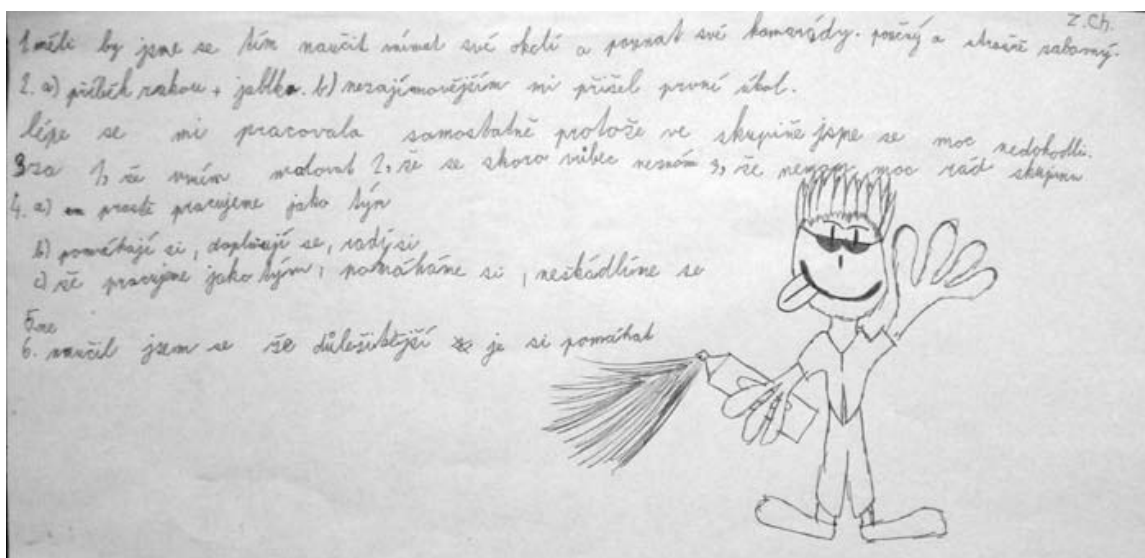 Z.Ch.
1 měli by jsme se tím naučit vnímat své okolí a poznat své kamarády. poučný a strašně zábavný.
2. a) příběh rukou + jablko. b) nezajímovějším mi přišel první úkol.
lépe se mi pracovala samostatně protože ve skupině jsme se moc nedohodli.
3 za 1, že umím malovat 2, že se skoro vůbec neznám 3, že moc rád skupinu
4. a) prostě pracujeme jako tým
b) pomáhají si, doplňují se, radý si
c) že pracujme jako tým, pomáháme si, neškádlíme se
5. ne
6. naučil jsem se že důležitější je si pomáhat